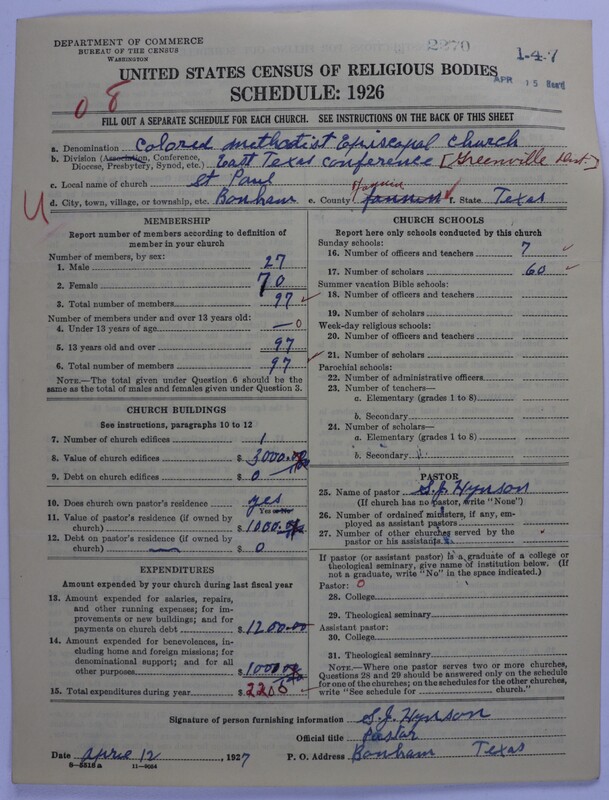 DEPARTMENT OF COMMERCE
BUREAU OF THE CENSUS
WASHINGTON
2270
1-4-7
UNITED STATES CENSUS OF RELIGIOUS BODIES
APR 15 Rec'd
SCHEDULE: 1926
0 8
FILL OUT A SEPARATE SCHEDULE FOR EACH CHURCH. SEE INSTRUCTIONS ON THE BACK OF THIS SHEET
a. Denomination Colored Methodist Episcopal Church
b. Division (Association, Conference, Diocese, Presbytery, Synod, etc.) East Texas Conference [Greenville Dist.]
c. Local name of church St Paul
d. City, town, village, or township, etc. Bonham e. County Fannin f. State Texas
MEMBERSHIP
Report number of members according to definition of
member in your church
Number of members, by sex:
1. Male 27
2. Female 70
3. Total number of members 97
Number of members under and over 13 years old:
4. Under 13 years of age — 0
5. 13 years old and over 97
6. Total number of members 97
NOTE.—The total given under Question 6 should be
the same as the total of males and females given under Question 3.
CHURCH BUILDINGS
See instructions, paragraphs 10 to 12
7. Number of church edifices 1
8. Value of church edifices $ 3000.
9. Debt on church edifices $ 0
10. Does church own pastor's residence yes
Yes or no
11. Value of pastor's residence (if owned by
church) $ 1000.
12. Debt on pastor's residence (if owned by
church) $ 0
EXPENDITURES
Amount expended by your church during last fiscal year
13. Amount expended for salaries, repairs,
and other running expenses; for im-
provements or new buildings; and for
payments on church debt $ 1200.00
14. Amount expended for benevolences, in-
cluding home and foreign missions; for
denominational support; and for all
other purposes $ 1000
15. Total expenditures during year $ 2200
CHURCH SCHOOLS
Report here only schools conducted by this church
Sunday schools:
16. Number of officers and teachers 7
17. Number of scholars 60
Summer vacation Bible schools:
18. Number of officers and teachers
19. Number of scholars
Week-day religious schools:
20. Number of officers and teachers
21. Number of scholars
Parochial schools:
22. Number of administrative officers
23. Number of teachers—
a. Elementary (grades 1 to 8)
b. Secondary
24. Number of scholars—
a. Elementary (grades 1 to 8)
b. Secondary
PASTOR
25. Name of pastor S.J. Hynson
(If church has no pastor, write "None")
26. Number of ordained ministers, if any, em-
ployed as assistant pastors
27. Number of other churches served by the
pastor or his assistants
If pastor (or assistant pastor) is a graduate of a college or
theological seminary, give name of institution below. (If
not a graduate, write "No" in the space indicated.)
Pastor: 0
28. College
29. Theological seminary
Assistant pastor:
30. College
31. Theological seminary
NOTE.—Where one pastor serves two or more churches,
Questions 28 and 29 should be answered only on the schedule
for one of the churches; on the schedules for the other churches,
write "See schedule for church."
Signature of person furnishing information S.J. Hynson
Official title Pastor
Date April 12, 1927 P. O. Address Bonham Texas
8-5518 a 11-9034